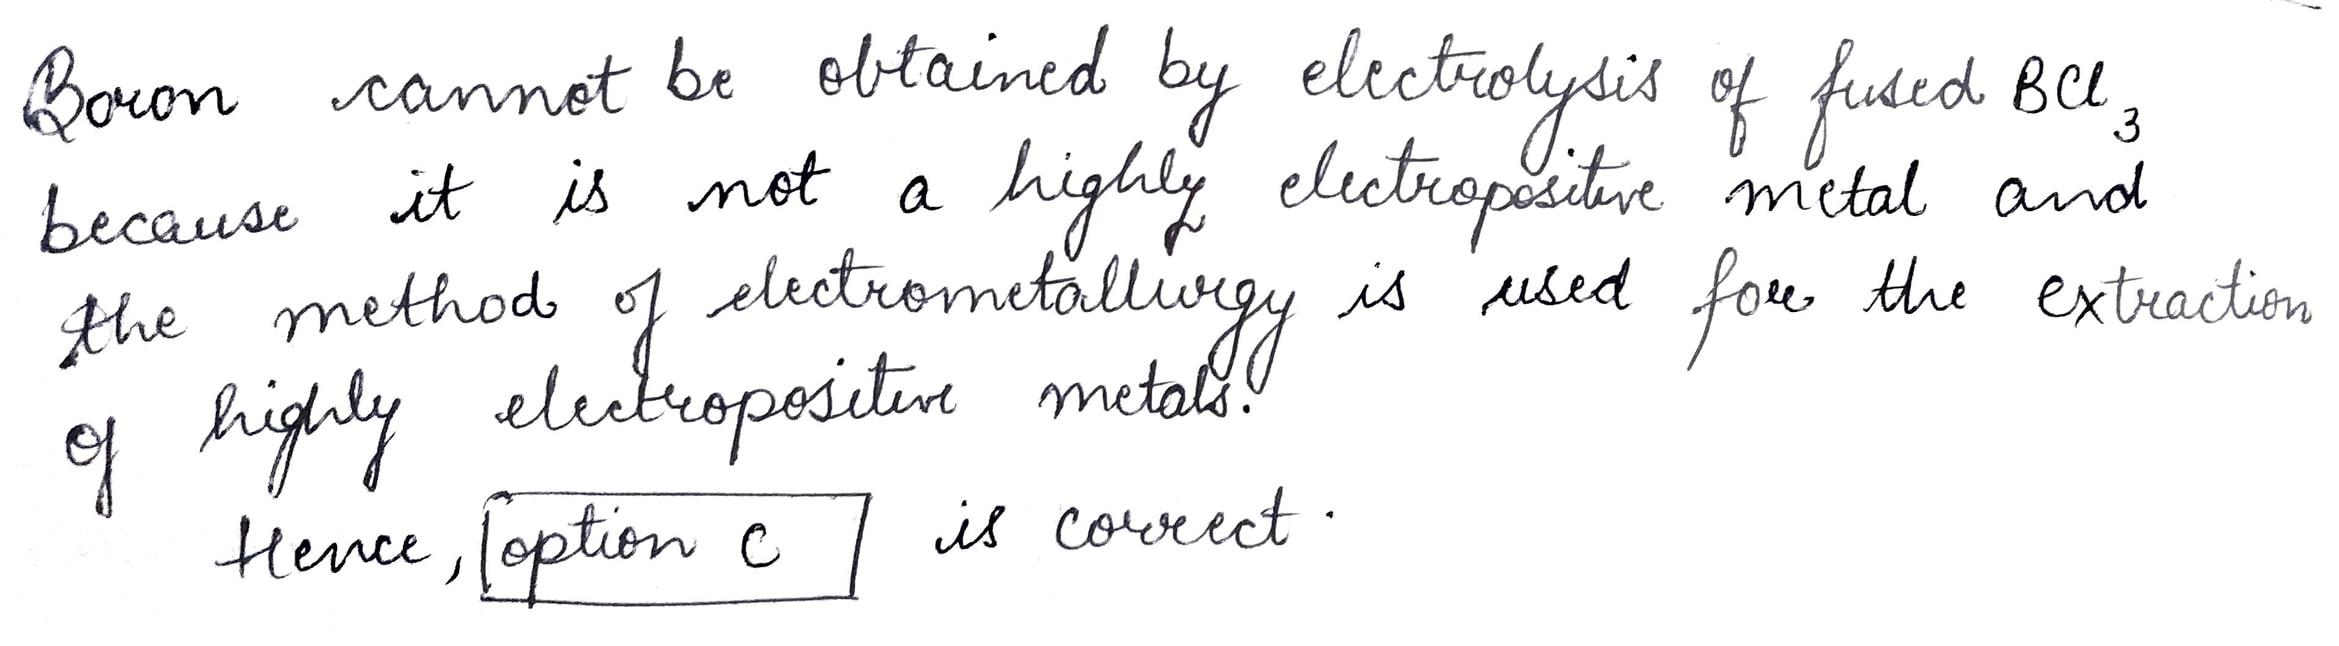 Boron cannot be obtained by electrolysis of fused BCl₃
because it is not a highly electropositive metal and
the method of electrometallurgy is used for the extraction
of highly electropositive metals.
Hence, option C is correct.